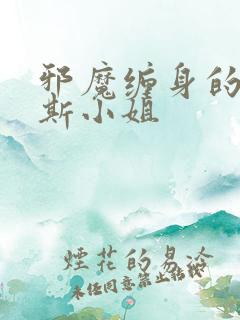 邪魔缠身的
斯小姐
烟花的易冷
未经同意禁止转载